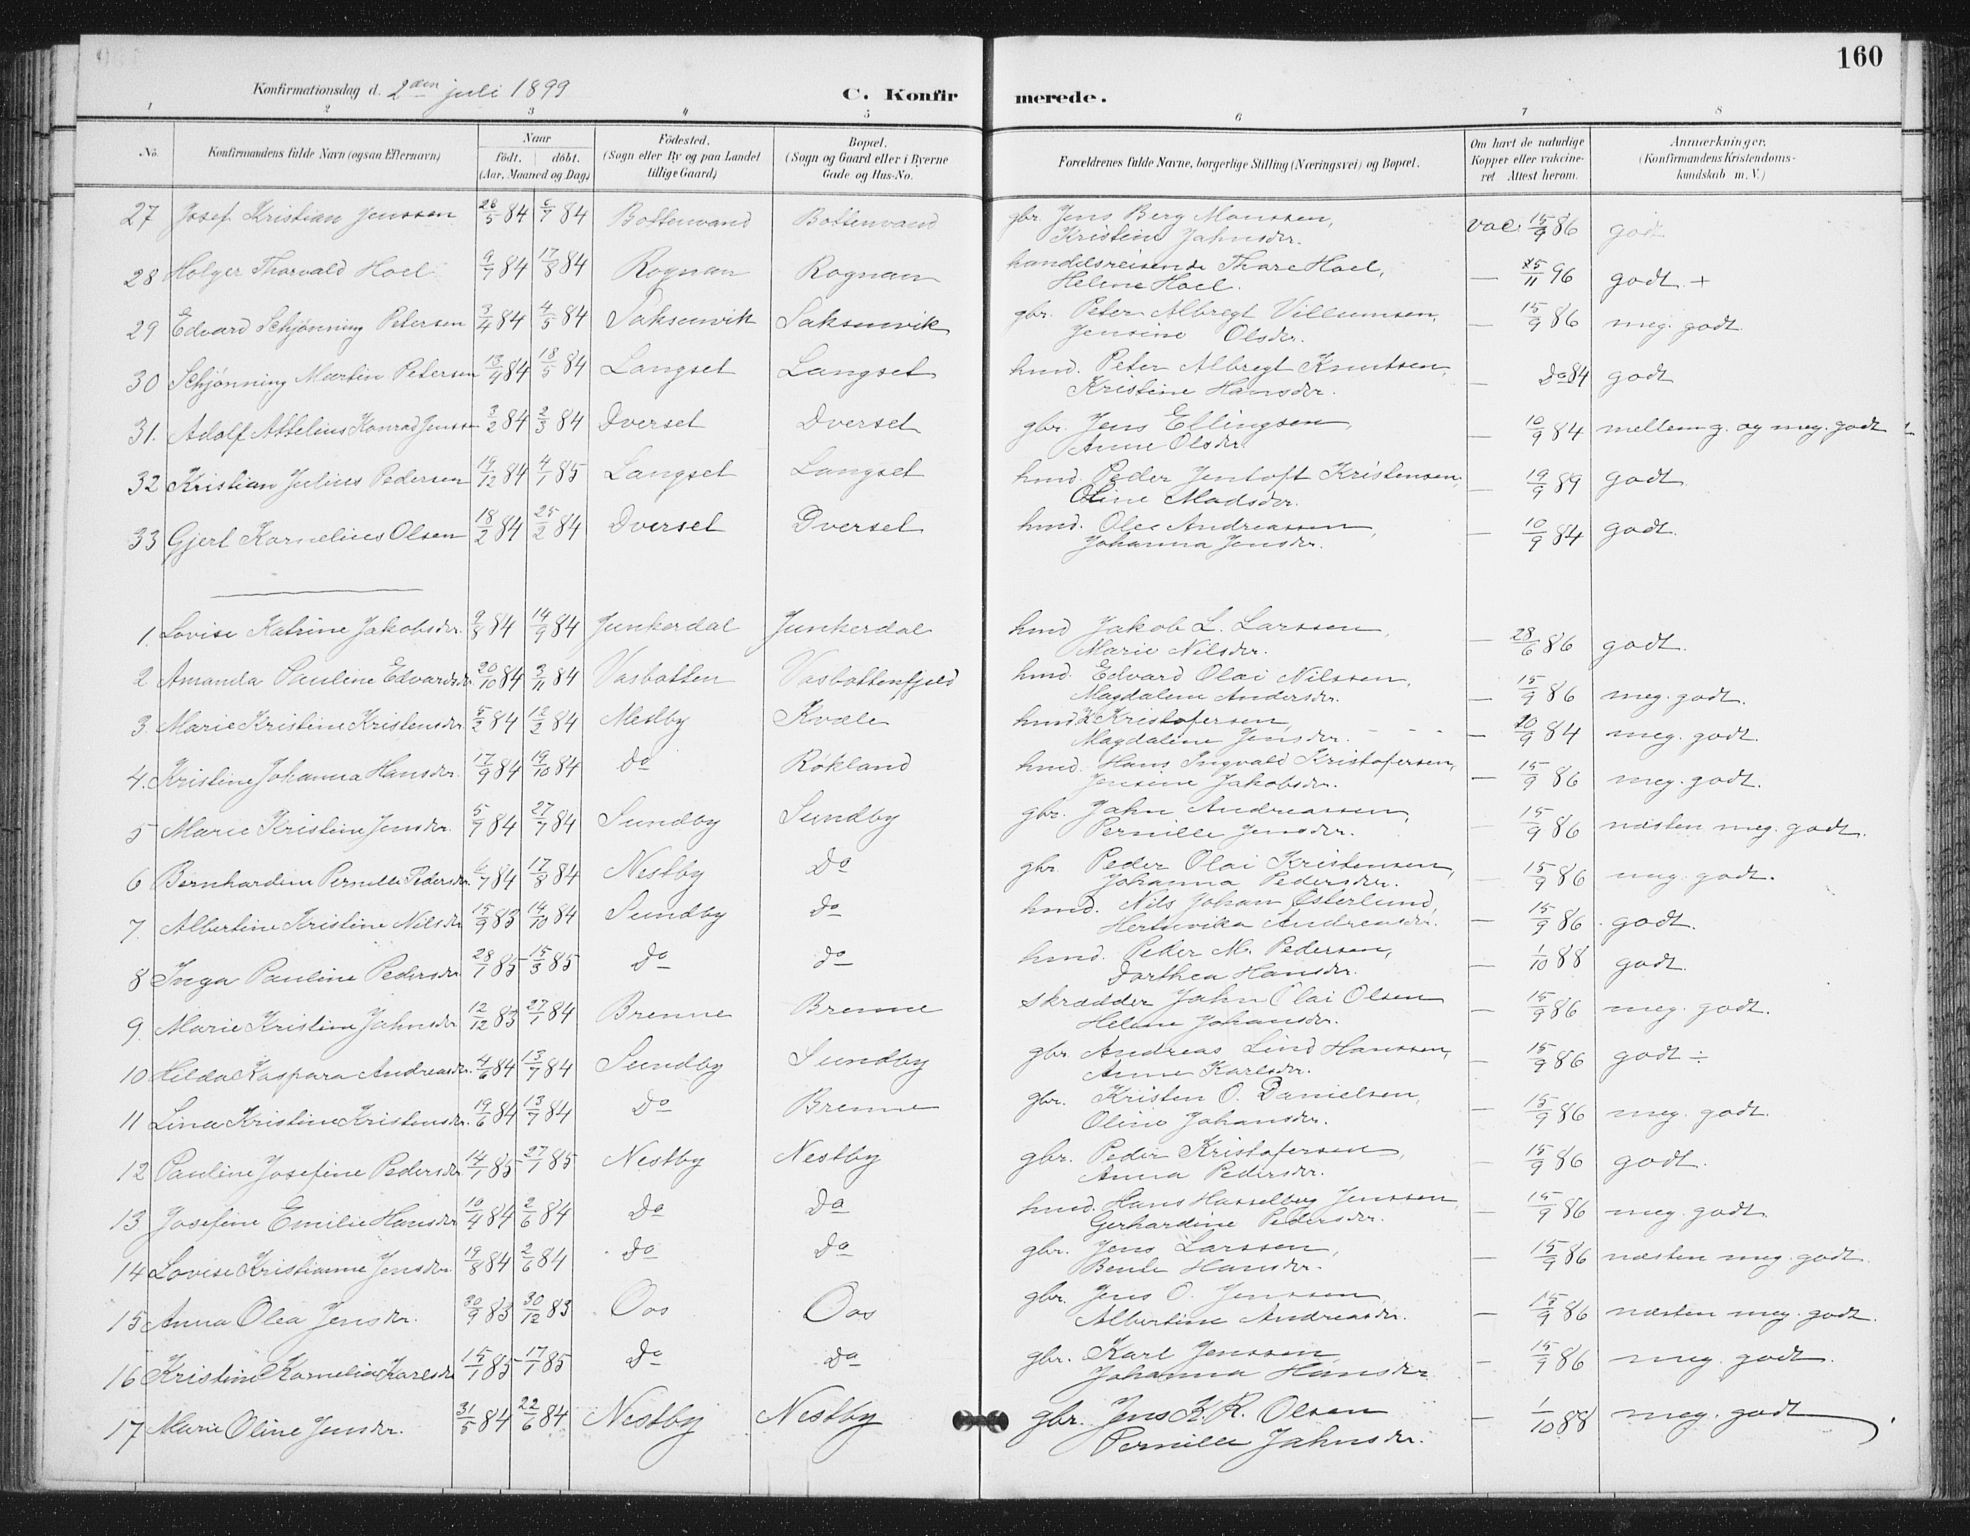 160
Konfirmationsdag d. 2den juli 1899 C. Konfirmerede.
1 2 3 4 5 6 7 8
No. Konfirmandens fulde Navn (ogsaa Efternavn) Naar født. døbt. (Aar, Maaned og Dag) Fødested. (Sogn eller By og paa Landet tillige Gaard) Bopæl. (Sogn og Gaard eller i Byerne Gade og Hus-No. Forældrenes fulde Navne, borgerlige Stilling (Næringsvei) og Bopæl. Om havt de naturlige Kopper eller vakcineret. Attest herom. Anmærkninger. (Konfirmandens Kristendomskundskab m. V.)
27 Josef Kristian Jenssen 28/5 84 6/7 84 Bottenvand Bottenvand gbr. Jens Berg Monssen, Kristine Jahnsdr. vac. 15/9 86 godt
28 Holger Thorvald Hoel 9/7 84 17/8 84 Rognan Rognan handelsreisende Thore Hoel, Helene Hoel. — 25/11 96 godt +
29 Edvard Schjønning Petersen 3/4 84 4/5 84 Saksenvik Saksenvik gbr. Peter Albregt Villumsen, Jensine Olsdr. — 15/9 86 meg. godt
30 Schjønning Martin Petersen 13/4 84 18/5 84 Langset Langset hmd. Peter Albregt Knutsen, Kristine Hansdr. — Do 84 godt
31. Adolf Attelius Konrad Jenssen 3/2 84 2/3 84 Dverset Dverset gbr. Jens Ellingsen, Anne Olsdr. — 10/9 84 mellem g. og meg. godt
32 Kristian Julius Pedersen 19/12 84 4/1 85 Langset Langset hmd. Peder Jentoft Kristensen, Oline Madsdr. — 19/9 89 godt
33 Gjert Kornelius Olsen 18/2 84 25/2 84 Dverset Dverset hmd. Ole Andreassen, Johanna Jensdr. — 10/9 84 godt.
1. Lovise Katrine Jakobsdr. 9/8 84 14/9 84 Junkerdal Junkerdal hmd Jakob L. Larssen, Marie Nilsdr. — 28/6 86 godt.
2 Amanda Pauline Edvardsdr. 20/10 84 3/11 84 Vasbotten Vasbottenfjeld hmd. Edvard Olai Nilssen, Magdalene Andersdr. — 15/9 86 meg. godt.
3. Marie Kristine Kristensdr. 5/2 84 12/2 84 Nestby Kvæle hmd K. Kristofersen, Magdalene Jensdr. — 10/9 84 meg. godt.
4. Kristine Johanna Hansdr. 17/9 84 19/10 84 Do Røkland hmd. Hans Ingvald Kristofersen, Jensine Jakobsdr. — 15/9 86 meg. godt.
5 Marie Kristine Jensdr. 5/7 84 27/7 84 Sundby Sundby gbr. Jahn Andreassen, Pernille Jensdr. — 15/9 86 næsten meg. godt.
6 Bernhardine Pernille Pedersdr. 6/7 84 17/8 84 Nestby Do gbr. Peder Olai Kristensen, Johanna Pedersdr. — 15/9 86 meg. godt.
7. Albertine Kristine Nilsdr 15/9 83 14/10 84 Sundby do hmd. Nils Johan Østerlund, Hertuvika Andreasdr. — 15/9 86 godt.
8 Inga Pauline Pedersdr. 28/1 85 15/3 85 Do do hmd. Peder M. Pedersen, Dorthea Hansdr. — 1/10 88 godt.
9. Marie Kristine Jahnsdr 12/12 83 27/1 84 Brenne Brenne skrædder Jahn Olai Olsen Helene Johansdr. — 15/9 86 meg. godt.
10 Hilda Kaspara Andreasdr. 4/6 84 13/7 84 Sundby Sundby gbr Andreas Lind Hanssen, Anne Karlsdr. — 15/9 86 godt ÷
11 Lina Kristine Kristensdr. 19/6 84 13/7 84 Do Brenne gbr. Kristen O. Danielsen, Oline Johansdr. — 15/9 86 meg. godt.
12 Pauline Josefine Pedersdr 14/1 85 27/1 85 Nestby Nestby gbr. Peder Kristofersen, Anna Pedersdr. — 15/9 86 godt.
13 Josefine Emilie Hansdr 10/4 84 2/6 84 Do Do hmd. Hans Hasselberg Jenssen, Gerhardine Pedersdr. — 15/9 86 meg. godt.
14 Lovise Kristianne Jensdr. 19/8 84 2/6 84 Do Do gbr. Jens Larssen, Bente Hansdr. — 15/9 86 næsten meg. godt.
15 Anna Olea Jensdr. 30/9 83 30/12 83 Oos Oos gbr. Jens O. Jenssen Albertine Andreasdr. — 15/9 86 næsten meg. godt.
16 Kristine Kornelia Karlsdr 15/1 85 17/1 85 Do Do gbr. Karl Jenssen, Johanna Hansdr — 15/9 86 meg. godt.
17 Marie Oline Jensdr. 31/5 84 22/6 84 Nestby Nestby gbr. Jens K. R. Olsen Pernille Jahnsdr. — 1/10 88 meg. godt